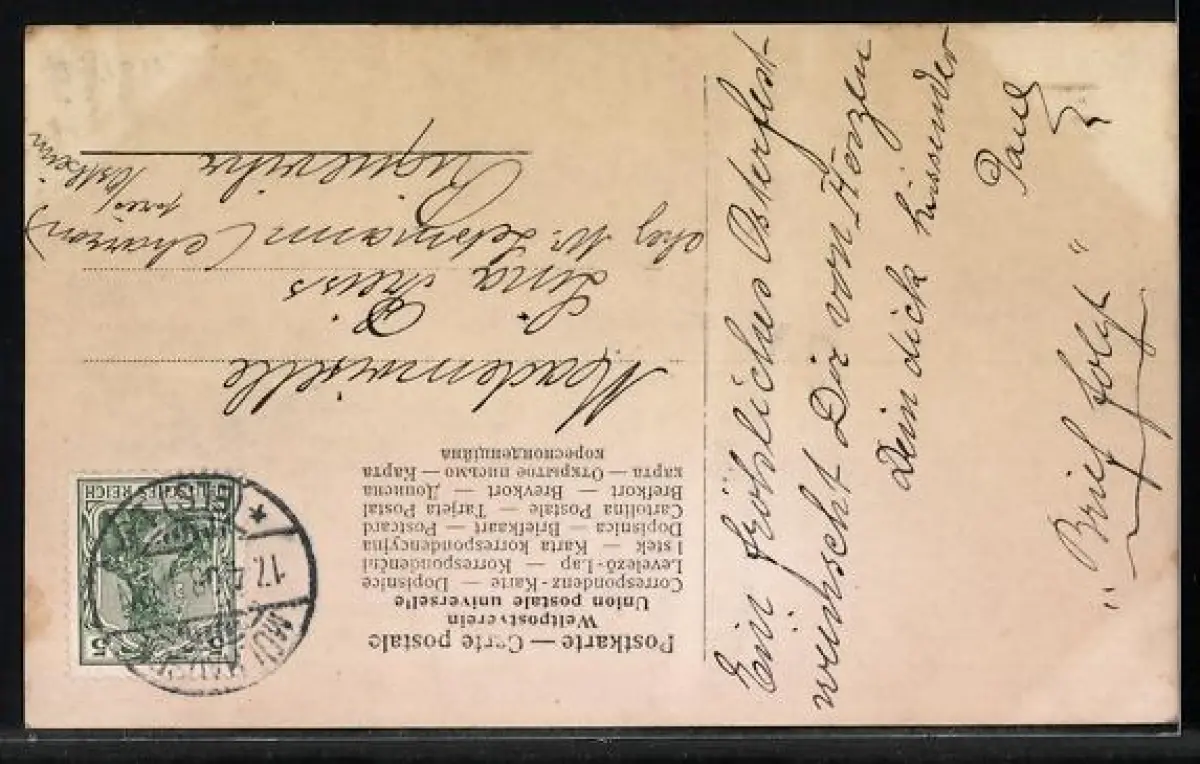 Postkarte — Carte postale
Weltpostverein
Union postale universelle
Correspondenz-Karte — Dopisnice
Levelező-Lap — Korrespondenčni
listek — Karta korrespondencyjna
Dopisnica — Briefkaart — Postcard
Cartolina Postale — Tarjeta Postal
Brefkort — Brevkort — Дописна
карта — Открытое письмо — Карта
кореспонденційна
DEUTSCHES REICH
5 5
17. 4.
Mademoiselle
Lina Preiss
chez Mr.
Riquewihr
près Ostheim
Ein fröhliches Osterfest
wünscht Dir von Herzen
Dein dich küssender
Paul
"Brief folgt"